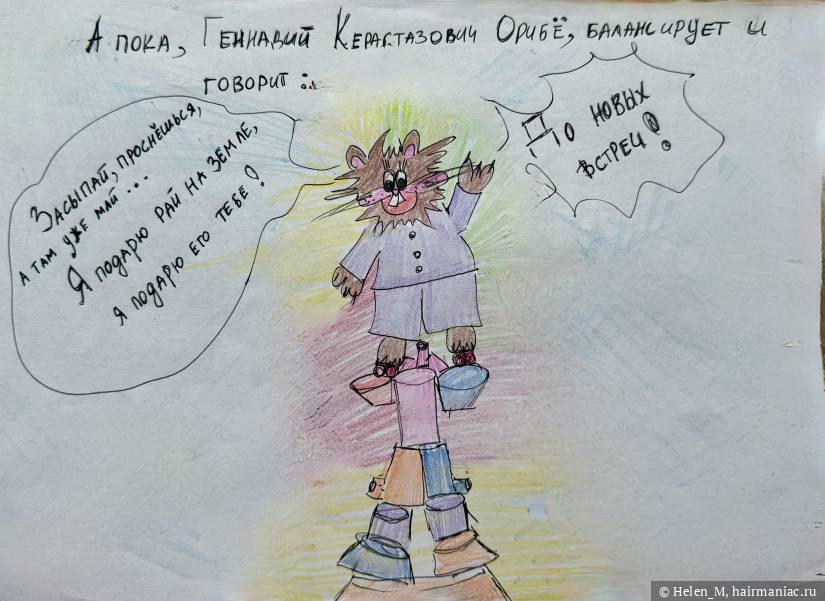 А пока, Геннадий Керастазович Орибё, балансирует и
говорит:..
Засыпай, проснёшься,
а там уже май...
Я подарю рай на земле,
я подарю его тебе!
До новых
встреч!
© Helen_M, hairmaniac.ru